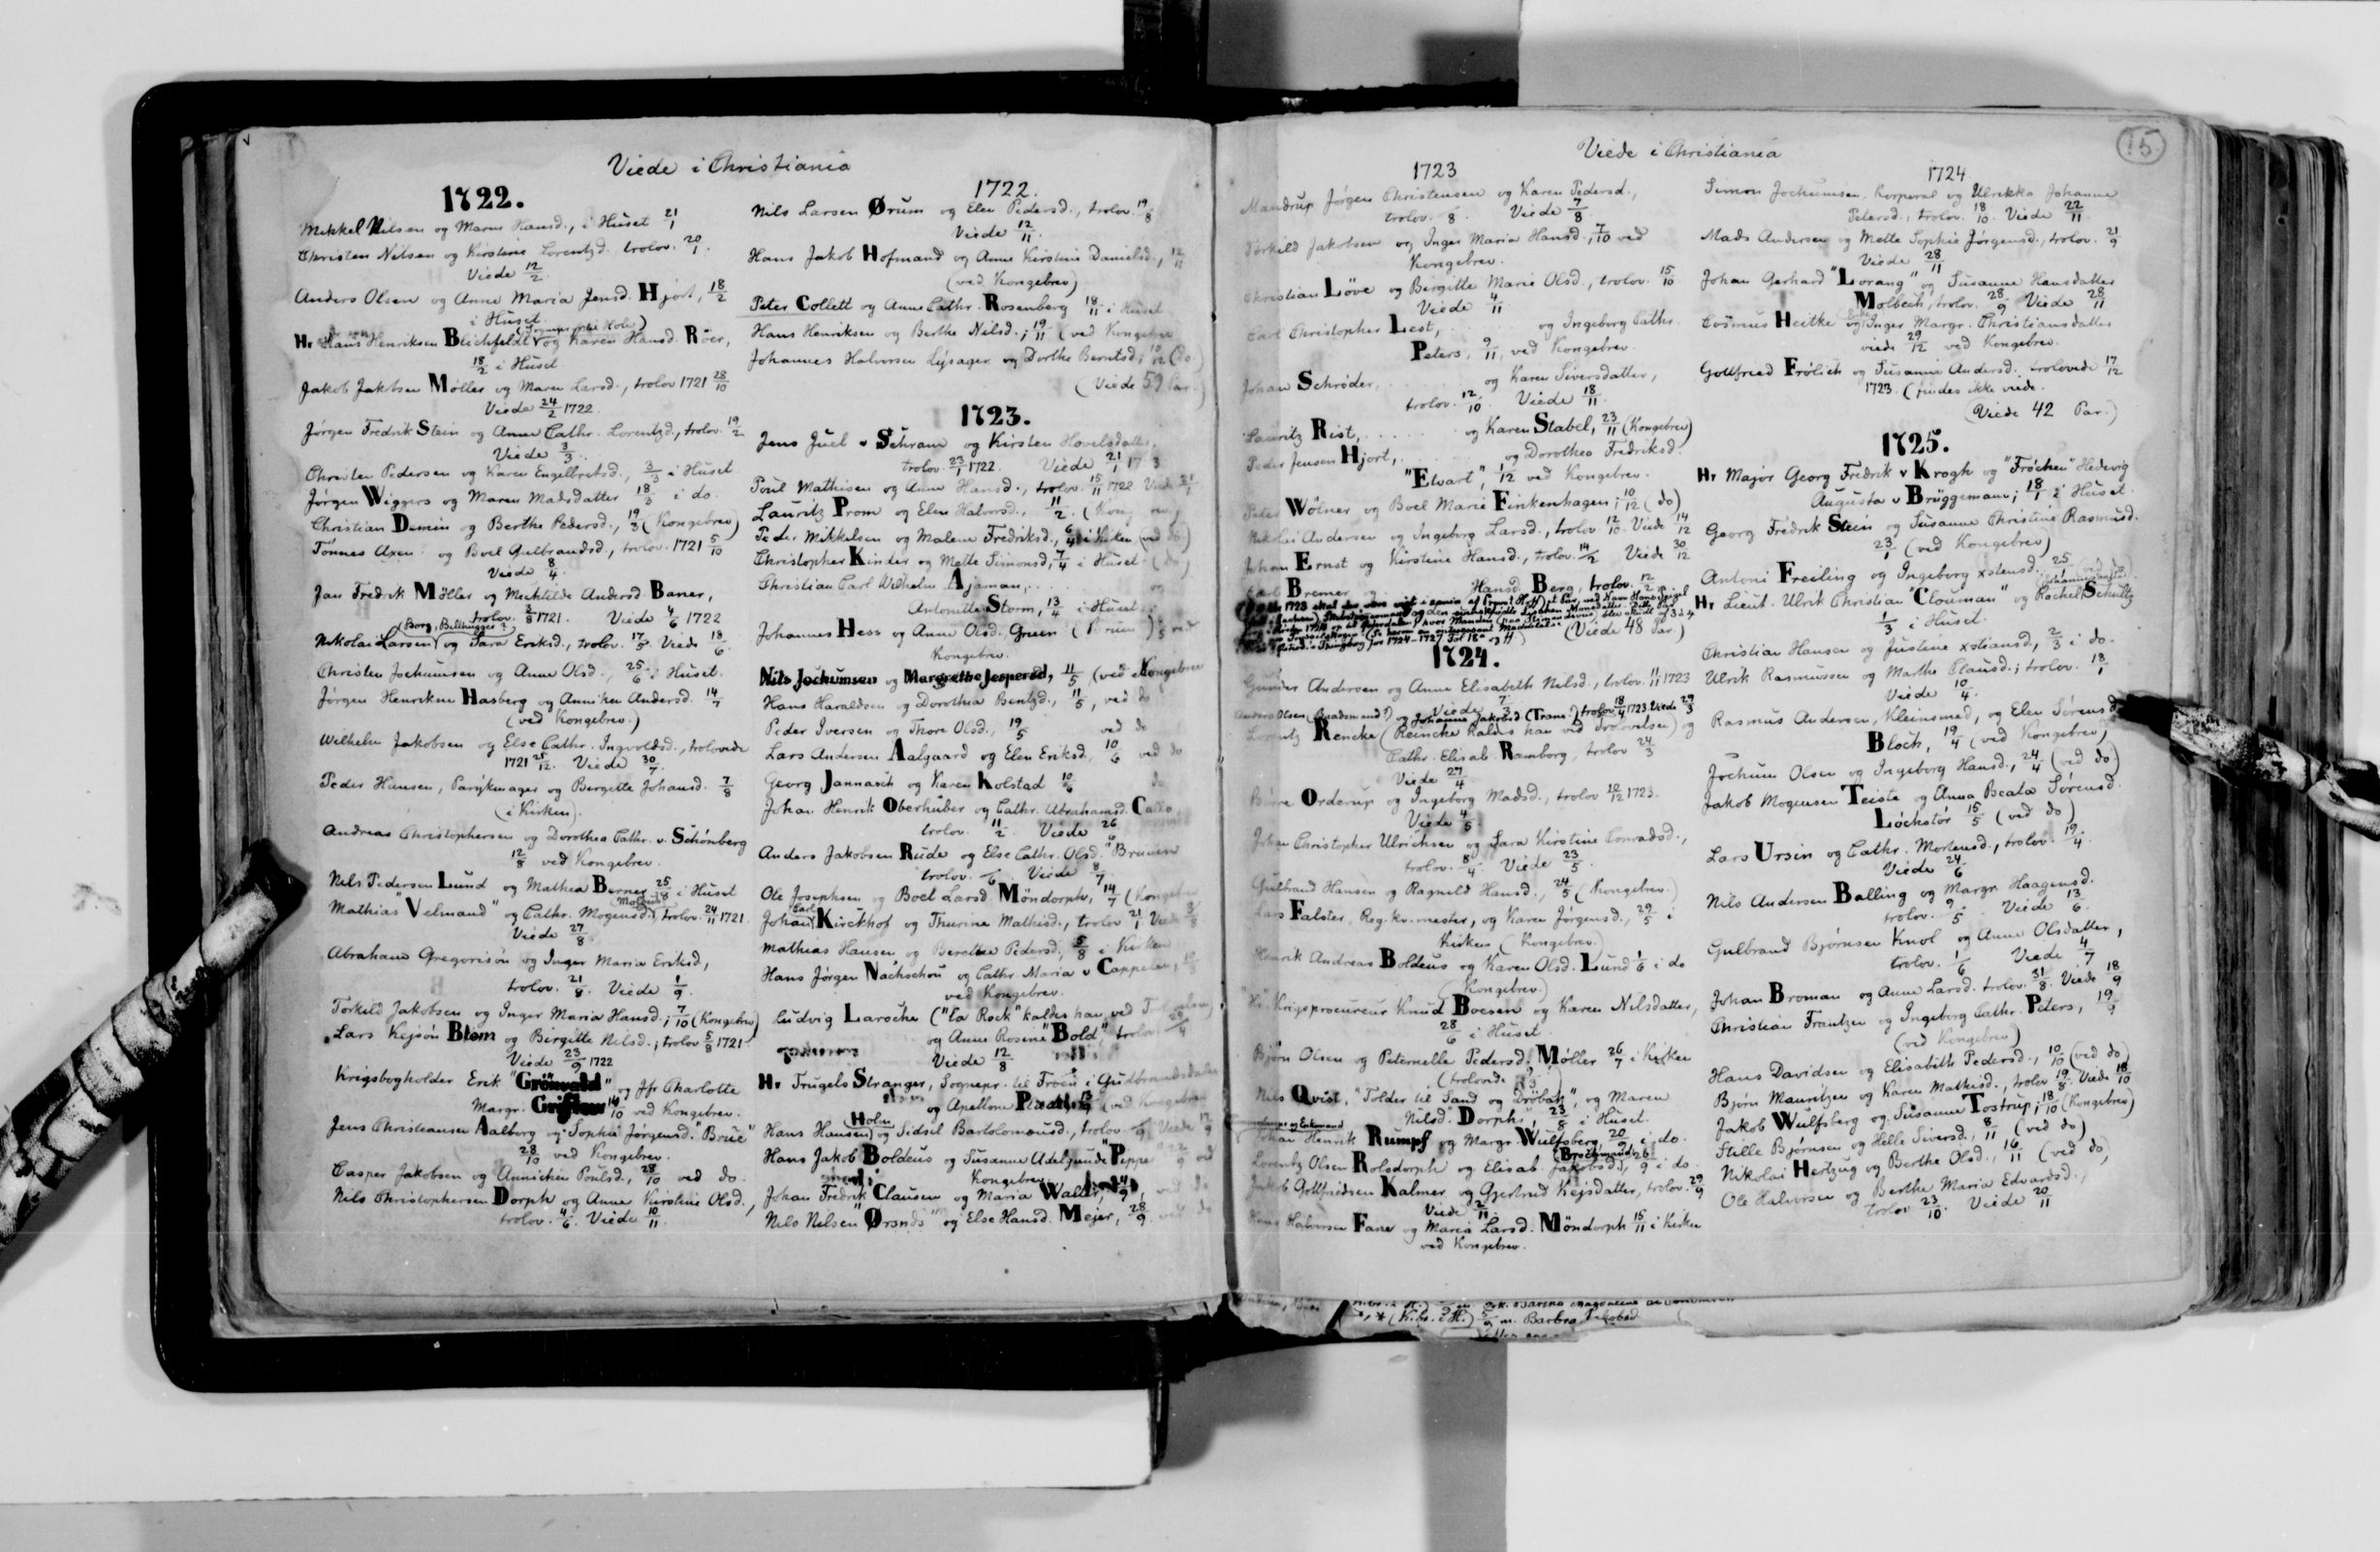 Viede i Christiania
1722.
Mikkel Nilsen og Maren Hansd., i Huset 21/1
Christen Nilsen og Kirstine Lorentzd. trolov. 20/1.
Viede 12/2.
Anders Olsen og Anne Maria Jensd. Hjort, 18/2
i Huset.
Hr Hans Henriksen Blichfeldt og Karen Hansd. Röer,
18/2 i Huset
Jakob Jakobsen Møller og Maren Larsd., trolov 1721 28/10
Viede 24/2 1722.
Jørgen Fredrik Stein og Anne Cathr. Lorentzd., trolov. 19/2
Viede 3/3.
Christen Pedersen og Karen Engelbretsd., 3/3 i Huset
Jørgen Wiggers og Maren Madsdatter 18/3 i do.
Christian Demin og Berthe Pedersd., 19/3 (Kongebrev)
Tönnes Axen og Boel Gulbrandsd., trolov. 1721 5/10
Viede 8/4.
Jan Fredrik Möller og Mechtilde Andersd. Baner,
trolov. 3/8 1721. Viede 4/6 1722
(Borg, Bilthugger?)
Nikolai Larsen og Sara Eriksd., trolov. 17/5. Viede 18/6.
Christen Jochumsen og Anne Olsd., 25/6 i Huset.
Jørgen Henriksen Hasberg og Anniken Andersd. 14/7
(ved Kongebrev.)
Wilhelm Jakobsen og Else Cathr. Ingvoldsd., trolovede
1721 28/12. Viede 30/7.
Peder Hansen, Parykmager og Birgitte Johansd. 7/8
(i Kirken).
Andreas Christophersen og Dorothea Cathr. v. Schönberg
12/8 ved Kongebrev.
Nils Pedersen Lund og Mathea Berner 25/8 i Huset
Mathias "Velmand" og Cathr. Mogensd., trolov. 24/11 1721.
Viede 27/8.
Abraham Gregorisön og Inger Maria Eriksd.,
trolov. 21/8. Viede 1/9.
Torkild Jakobsen og Inger Maria Hansd.; 7/10 (Kongebrev)
Lars Kejsön Blom og Birgitte Nilsd.; trolov 5/8 1721
Viede 23/9 1722
Krigsbogholder Erik "Grönvald" og Jfr Charlotte
Margr. 14/10 ved Kongebrev.
Jens Christiansen Aalborg og Sophie Jørgensd. "Brue"
28/10 ved Kongebrev.
Casper Jakobsen og Annichen Poulsd., 28/10 ved do.
Nils Christophersen Dorph og Anne Kirstine Olsd.,
trolov. 4/6. Viede 10/11.
1722.
Nils Larsen Ørum og Elen Pedersd., trolov. 19/8
Viede 12/11.
Hans Jakob Hofmand og Anne Kirstine Danielsd., 12/11
(ved Kongebrev)
Peter Collett og Anne Cathr. Rosenberg 18/11 i Huset
Hans Henriksen og Berthe Nilsd.; 19/11 (ved Kongebrev
Johannes Halvorsen Lysager og Dorthe Berntsd; 10/12 (do.
(Viede 59 Par.)
1723.
Jens Juel v Schram og Kirsten Hovelsdatter
trolov. 23/1 1722. Viede 21/1
Poul Mathisen og Anne Hansd., trolov. 15/11 1722 Viede
Lauritz Prom og Elen Halvorsd., 11/2.
Peder Mikkelsen og Malene Fredriksd., 6/4 i Kirken (ved do.)
Christopher Kinder og Mette Simonsd, 7/4 i Huset (do)
Christian Carl Wilhelm Ajaman, . . . og
Antonette Storm, 13/4 i Huset
Johannes Hess og Anne Olsd. Gruen
Kongebrev.
Nils Jochumsen og Margrethe Jespersd, 11/5 (ved Kongebrev
Hans Haraldsen og Dorothea Bentzd., 11/5, ved do
Peder Iversen og Thore Olsd., 19/5 ved do
Lars Andersen Aalgaard og Elen Eriksd. 10/6 ved do
Georg Jannasch og Karen Kolstad 10/6 do
Johan Henrik Oberhuber og Cathr. Abrahamsd.
trolov. 11/2. Viede 26
Anders Jakobsen Rude og Else Cathr. Olsd. "Bruuen
trolov. /6. Viede 8/7
Ole Josephsen og Boel Larsd Möndorph, 14/7 (Kongebrev
Johan Carl Kirckhof og Thurine Mathisd., trolov 21/1 Viede
Mathias Hansen og Berethe Pedersd, 5/8 i Kirken
Hans Jørgen Nachschou og Cathr. Maria v Cappelen,
ved Kongebrev.
Ludvig Laroche ("La Rock" kaldes han ved
og Anne Rosine "Bold", trolov
Viede 12/8
Hr Trugels Stranger, Sognepr. til Froen i Gudbrandsdalen
og Apellone (ved Kongebrev
Hans Hansen Holm og Sidsel Bartolomeusd., trolov. Viede
Hans Jakob Boldeus og Susanne Adelgunde "Peppe
Kongebrev
Johan Fredrik Clausen og Maria
Nils Nilsen "Ørsnds" og Else Hansd. Mejer, 28/9 ved do
15
Viede i Christiania
1723
Mandrup Jørgen Christensen og Karen Pedersd.,
trolov. 8. Viede 7/8.
Torkild Jakobsen og Inger Maria Hansd., 7/10 ved
Kongebrev.
Christian Löve og Birgitte Marie Olsd., trolov. 15/10
Viede 4/11
Carl Christopher Lest, og Ingeborg Cathr.
Peters, 9/11, ved Kongebrev.
Johan Schröder, og Karen Siversdatter,
trolov. 12/10. Viede 18/11.
Lauritz Rist, . . . . og Karen Stabel, 23/11 (Kongebrev)
Peder Jensen Hjort, . . og Dorothea Fredriksd.
"Elvart", 1/12 ved Kongebrev.
Peter Wölner og Boel Marie Finkenhagen; 10/12 (do)
Nikolai Andersen og Ingeborg Larsd., trolov. 12/10. Viede 14/12
Johan Ernst og Kirstine Hansd., trolov. 14/2 Viede 30/12
Carl Bremer og Hansd. Berg, trolov. 12/2
(Viede 48 Par.)
1724.
Gunder Andersen og Anne Elisabeth Nilsd., trolov. 11/11 1723
Viede 7/3
Anders Olsen (Baadsmand?) og Johanne Jakobsd. (Trane?) trolov 18/4 1723 Viede 29/3
Lorentz Rencke (Reincke kaldes han ved Trolovelsen) og
Cathr. Elisab. Ramborg, trolov 24/3
Viede 27/4
Börre Orderup og Ingeborg Madsd., trolov 10/12 1723.
Viede 4/5.
Johan Christopher Ulrichsen og Sara Kirstine Conradsd.,
trolov. 8/4. Viede 23/5.
Gulbrand Hansen og Ragnild Hansd., 24/5 (Kongebrev.)
Lars Falster, Reg. kv. mester, og Karen Jørgensd., 29/5 i
Kirken (Kongebrev.)
Henrik Andreas Boldeus og Karen Olsd. Lund 1/6 i do
(Kongebrev.)
"Hr" Krigsprocureur Knud Boesen og Karen Nilsdatter,
28/6 i Huset.
Bjørn Olsen og Peternelle Pedersd. Møller 26/7 i Kirken
(trolovede
Nils Qvist, "Tolder til Sand og Dröbak", og Maren
Nilsd. "Dorphs", 23/8 i Huset.
Johan Henrik Rumpf og Margr. Wulfsberg, 20/9 i do.
Lorentz Olsen Rolsdorph og Elisab. Jakobsd., 26/9 i do.
Jakob Gottfriedsen Kalmer og Gjertrud Kejsdatter, trolov. 29/9
Viede 2/11.
Hans Halvorsen Fane og Maria Larsd. Möndorph 15/11 i Kirken
ved Kongebrev.
1724
Simon Jochumsen, Korporal og Ulrikka Johanne
Petersd., trolov. 18/10. Viede 22/11.
Mads Andersen og Mette Sophie Jörgensd., trolov. 21/9
Viede 28/11
Johan Gerhard "Lorang" og Susanne Hansdatter
Molbech, trolov. 28/9 Viede 28/11
Cosmus Heitke og Inger Margr. Christiansdatter
viede 29/12 ved Kongebrev.
Gottfried Frölich og Susanne Andersd. trolovede 17/12
1723. (findes ikke viede.
(Viede 42 Par.)
1725.
Hr Major Georg Fredrik v Krogh og "Fröchen" Hedevig
Augusta v Brüggeman; 18/1 i Huset.
Georg Fredrik Stein og Susanne Christine Rasmusd.
23/1 (ved Kongebrev)
Antoni Freiling og Ingeborg xstensd. 25/1
Hr Lieut. Ulrik Christian "Clouman" og Rachel Schultz
1/3 i Huset.
Christian Hansen og Justine xstiansd., 2/3 i do.
Ulrik Rasmussen og Marthe Clausd.; trolov. 18/1
Viede 10/4.
Rasmus Andersen, Kleinsmed, og Elen Sørensd
Bloch, 19/4 (ved Kongebrev)
Jochum Olsen og Ingeborg Hansd., 24/4 (ved do)
Jakob Mogensen Teiste og Anna Beata Sørensd.
Löchstör 15/5 (ved do)
Lars Ursin og Cathr. Mortensd., trolov. 19/4.
Viede 24/6
Nils Andersen Balling og Margr. Haagensd.
trolov. 9/5. Viede 13/6.
Gulbrand Bjørnsen Knol og Anne Olsdatter,
trolov. 1/6 Viede 4/7
Johan Broman og Anne Larsd. trolov. 31/8. Viede 18/9
Christian Frantzen og Ingeborg Cathr. Peters, 19/9
(ved Kongebrev)
Hans Davidsen og Elisabeth Pedersd., 10/10 (ved do)
Bjørn Mauritzen og Karen Mathisd., trolov 19/8. Viede 18/10
Jakob Wulfsberg og Susanne Tostrup; 18/10 (Kongebrev)
Stille Bjørnsen og Helle Siversd., 8/11 (ved do)
Nikolai Hertzug og Berthe Olsd., 16/11 (ved do)
Ole Halvorsen og Berthe Maria Edvardsd.,
trolov 23/10. Viede 20/11